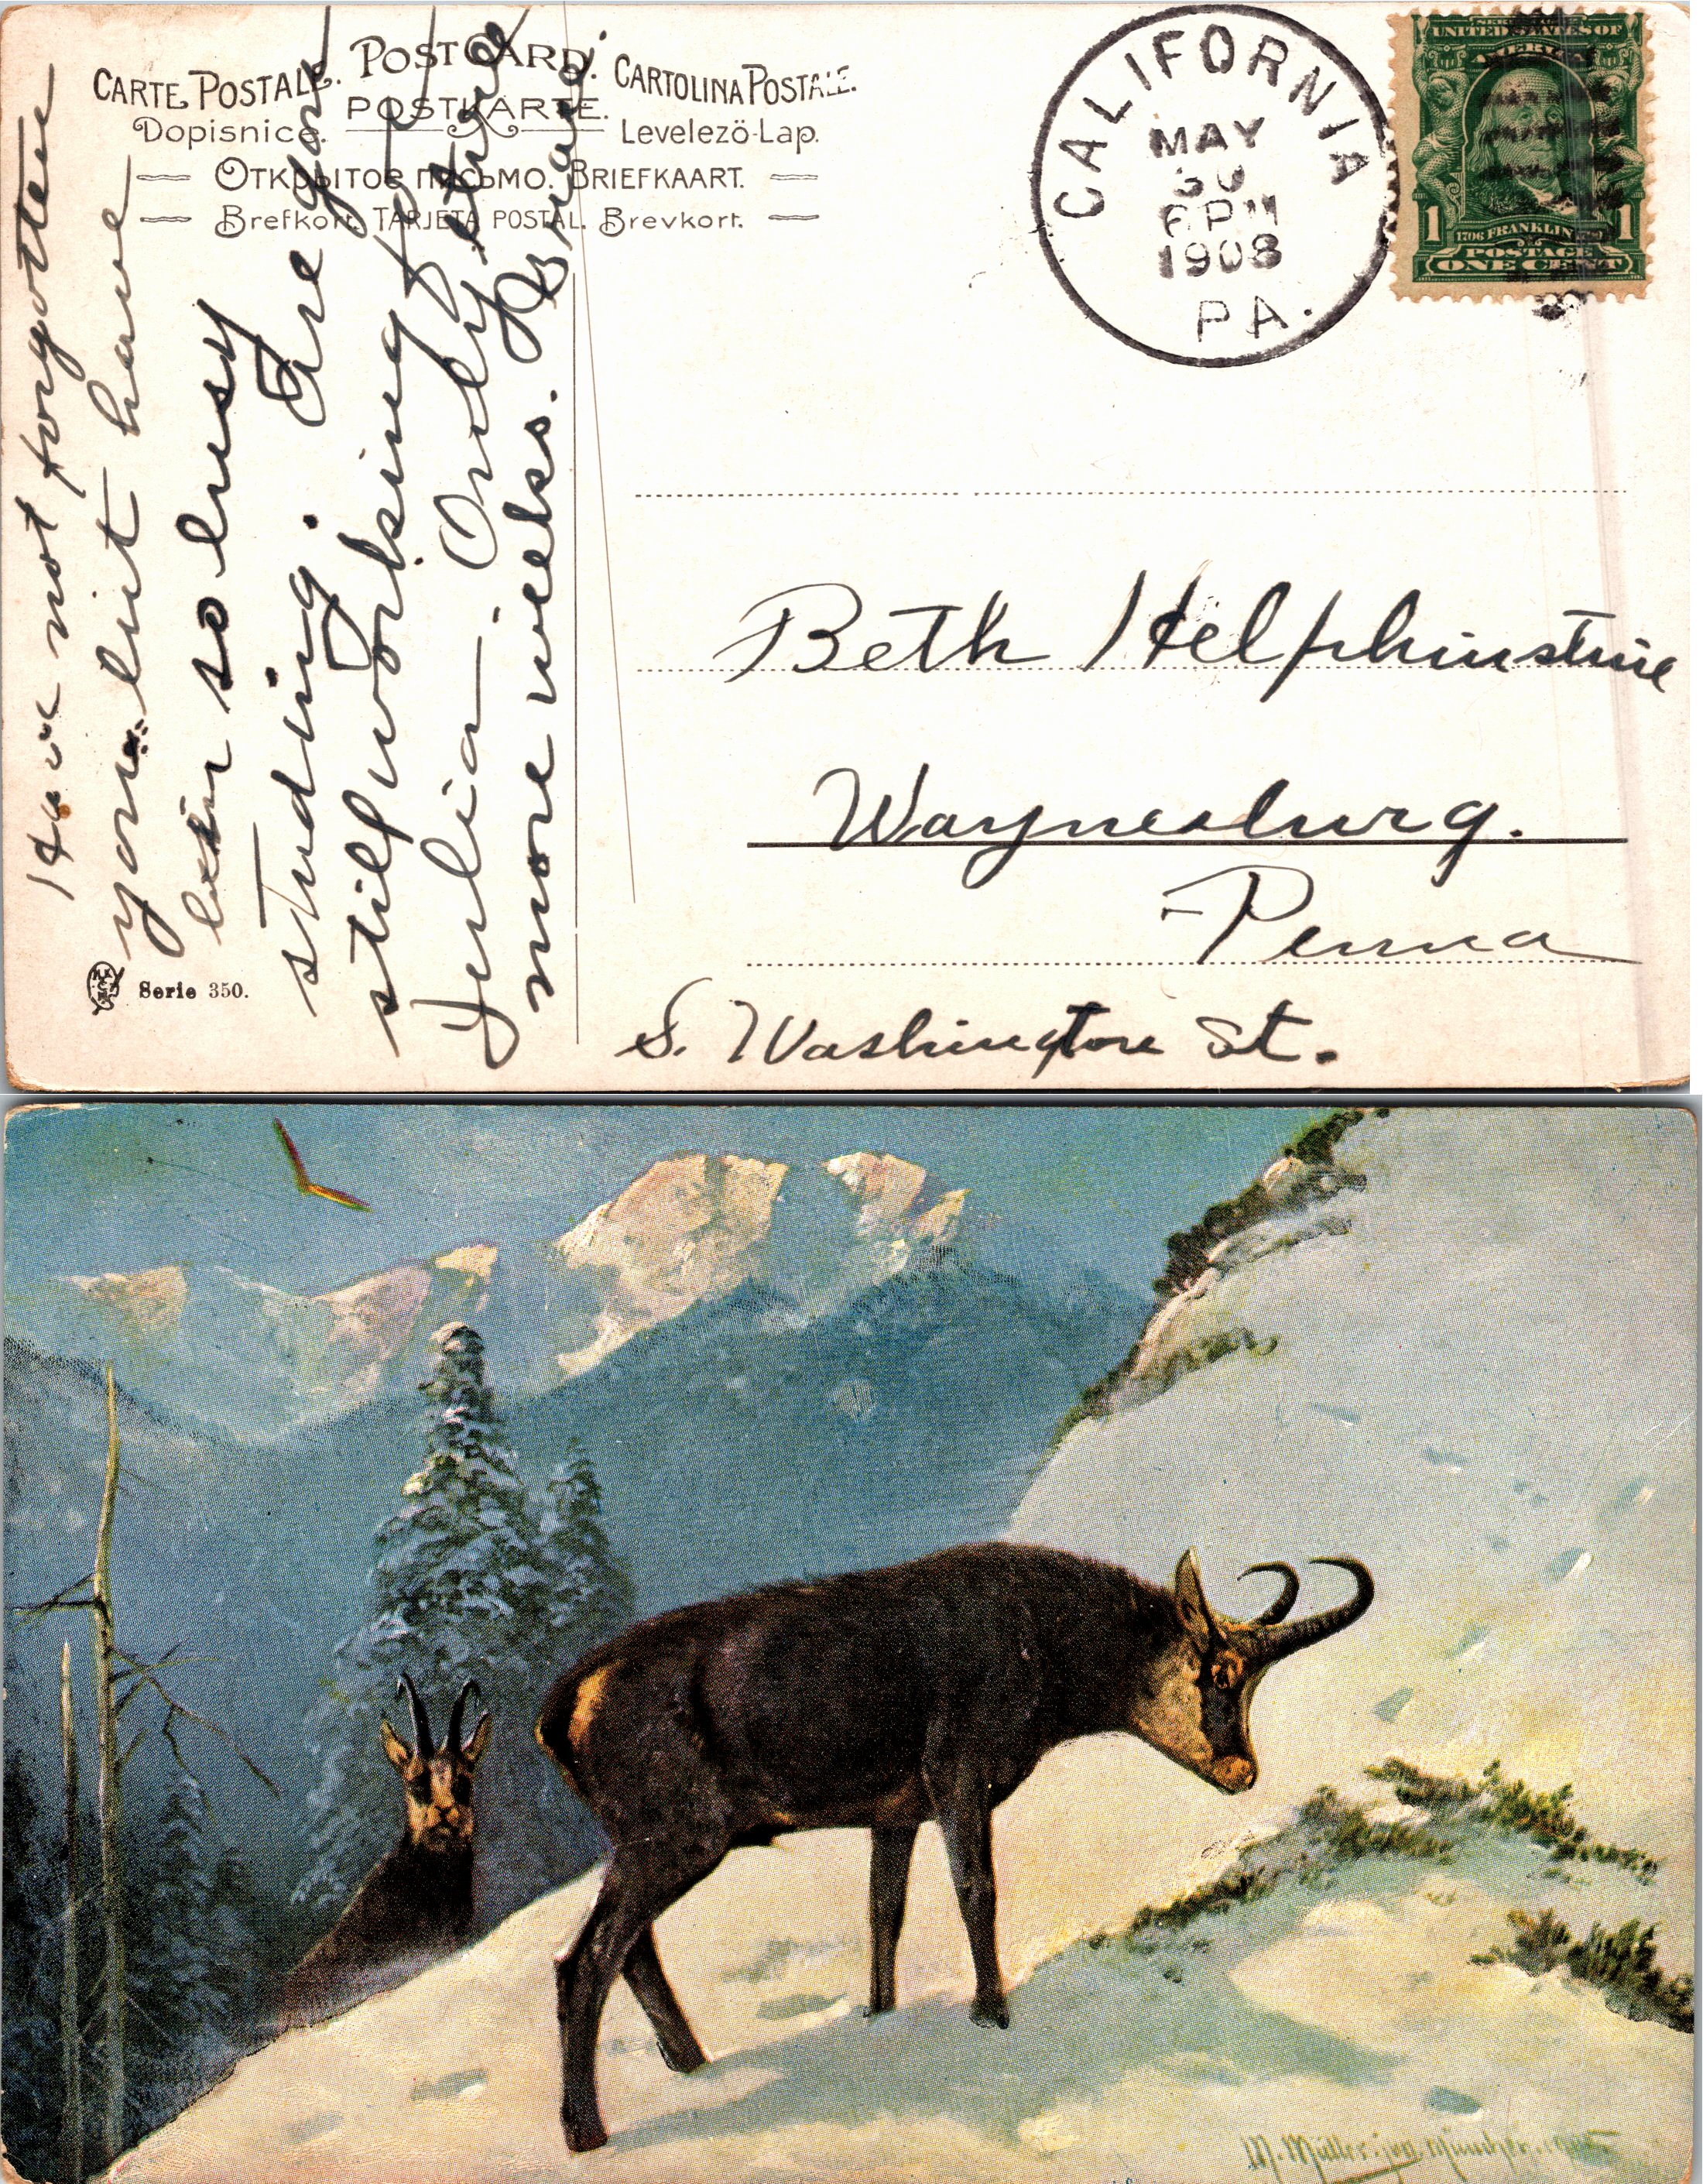 POST CARD.
CARTE POSTALE. CARTOLINA POSTALE.
POSTKARTE.
Dopisnice. Levelező-Lap.
ОТКРЫТОЕ ПИСЬМО. BRIEFKAART.
Brefkort. TARJETA POSTAL. Brevkort.
CALIFORNIA
MAY
30
6 PM
1908
PA.
UNITED STATES OF
AMERICA
1 1706 FRANKLIN 1
POSTAGE
ONE CENT
Have not forgotten
you but have
been so busy
studing. Are you
still working for
Julia – Only three
more weeks.
Beth Helphinstine
Waynesburg.
Penna
S. Washington St.
Serie 350.
M. Müller jun. München.